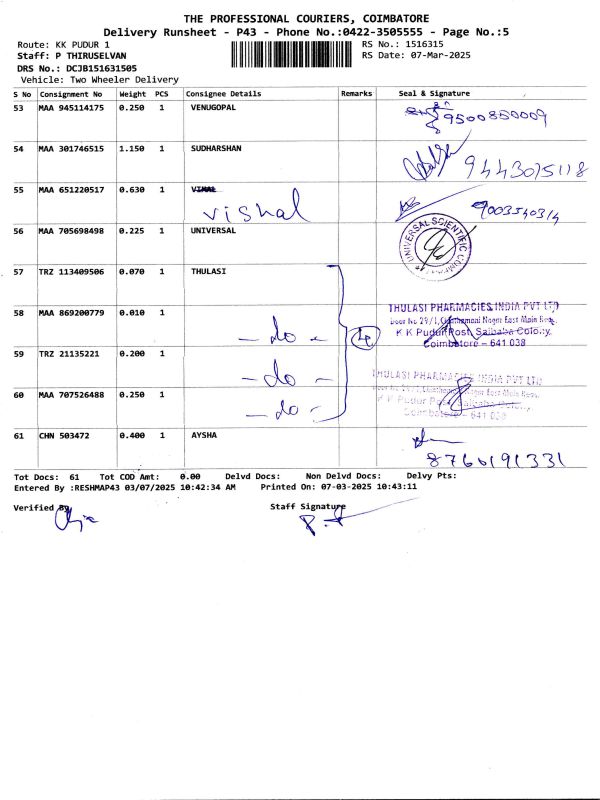 THE PROFESSIONAL COURIERS, COIMBATORE
Delivery Runsheet - P43 - Phone No.:0422-3505555 - Page No.:5
Route: KK PUDUR 1
RS No.: 1516315
Staff: P THIRUSELVAN
RS Date: 07-Mar-2025
DRS No.: DCJB151631505
Vehicle: Two Wheeler Delivery
S No Consignment No Weight PCS Consignee Details Remarks Seal & Signature
53 MAA 945114175 0.250 1 VENUGOPAL 9500850009
54 MAA 301746515 1.150 1 SUDHARSHAN 9443015118
55 MAA 651220517 0.630 1 VIMAL
vishal 9003540314
56 MAA 705698498 0.225 1 UNIVERSAL
UNIVERSAL SCIENTIFIC
57 TRZ 113409506 0.070 1 THULASI
58 MAA 869200779 0.010 1
THULASI PHARMACIES INDIA PVT LTD
Door No 29/1, Chinthamani Nagar East Main Road,
K K Pudur Post, Saibaba Colony,
Coimbatore - 641 038
- do - 4
59 TRZ 21135221 0.200 1
- do -
THULASI PHARMACIES INDIA PVT LTD
60 MAA 707526488 0.250 1
K K Pudur Post, Saibaba Colony,
Coimbatore - 641 038
- do -
61 CHN 503472 0.400 1 AYSHA
8760191331
Tot Docs: 61 Tot COD Amt: 0.00 Delvd Docs: Non Delvd Docs: Delvy Pts:
Entered By :RESHMAP43 03/07/2025 10:42:34 AM Printed On: 07-03-2025 10:43:11
Verified By
Staff Signature